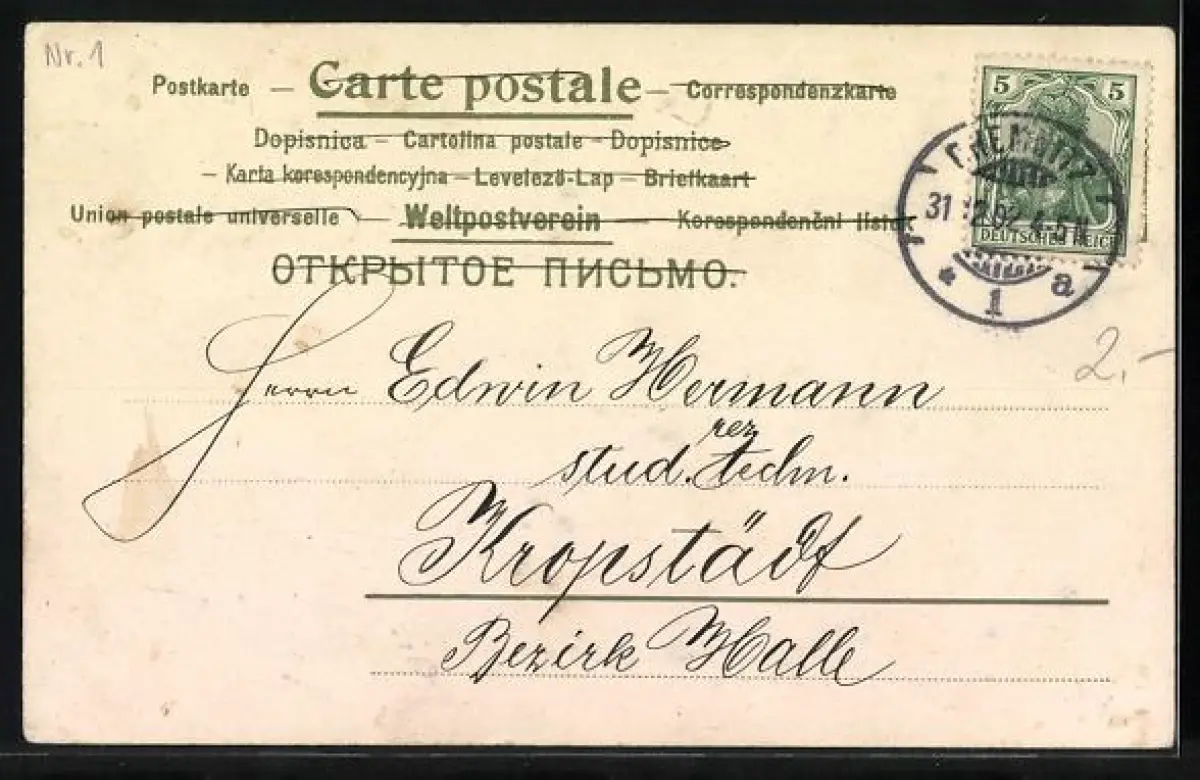 Nr. 1
Postkarte – Carte postale – Correspondenzkarte
Dopisnica – Cartolina postale – Dopisnice
– Karta korespondencyjna – Levelező-Lap – Briefkaart
Union postale universelle – Weltpostverein – Korespondenční lístek
ОТКРЫТОЕ ПИСЬМО.
5 5
DEUTSCHES REICH
CHEMNITZ
31 12.02. 4-5 N.
* 1 a
2.-
Herrn Edwin Hermann
rez
stud. techn.
Kropstädt
Bezirk Halle